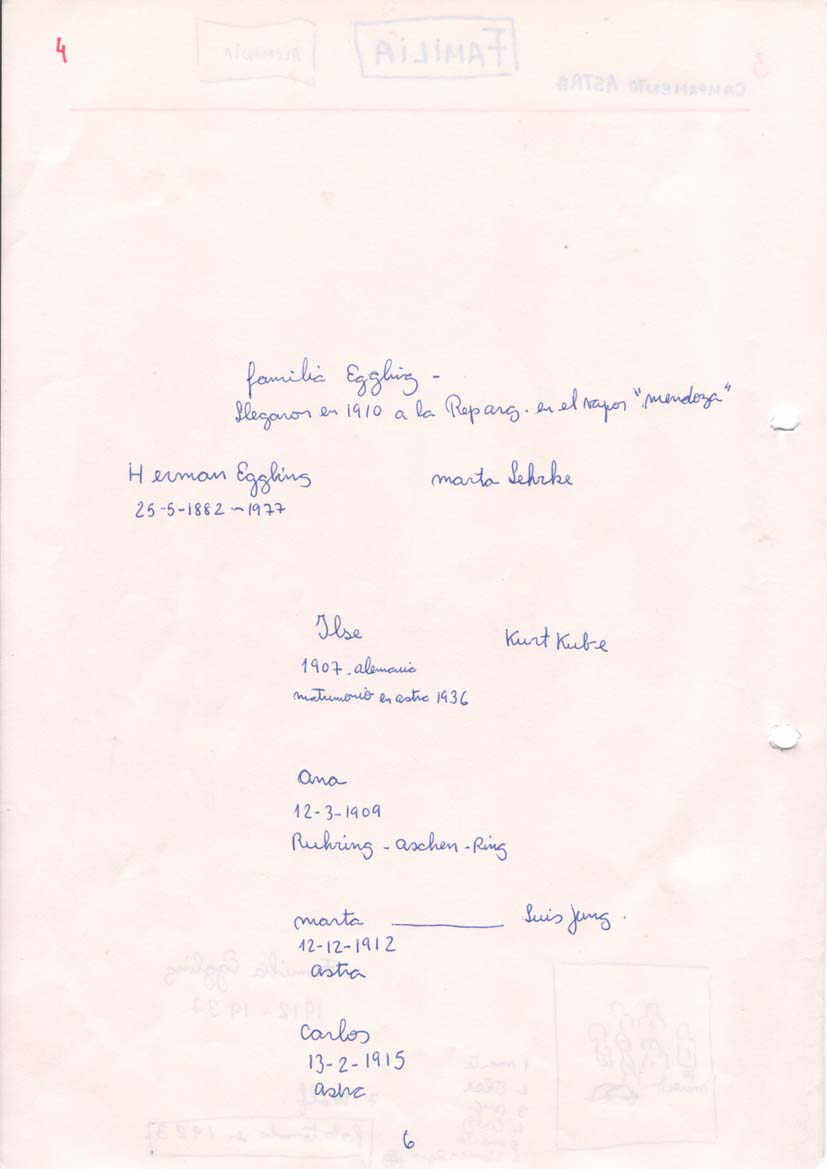 4
familia Eggling -
llegaron en 1910 a la Rep arg. en el vapor "mendoza"
Herman Eggling marta Lehrke
25-5-1882 - 1977
Ilse Kurt Kube
1907 - alemania
matrimonio en astra 1936
Ana
12-3-1909
Ruhring - aschen - Ring
marta ________ Luis Jung.
12-12-1912
astra
Carlos
13-2-1915
astra
6